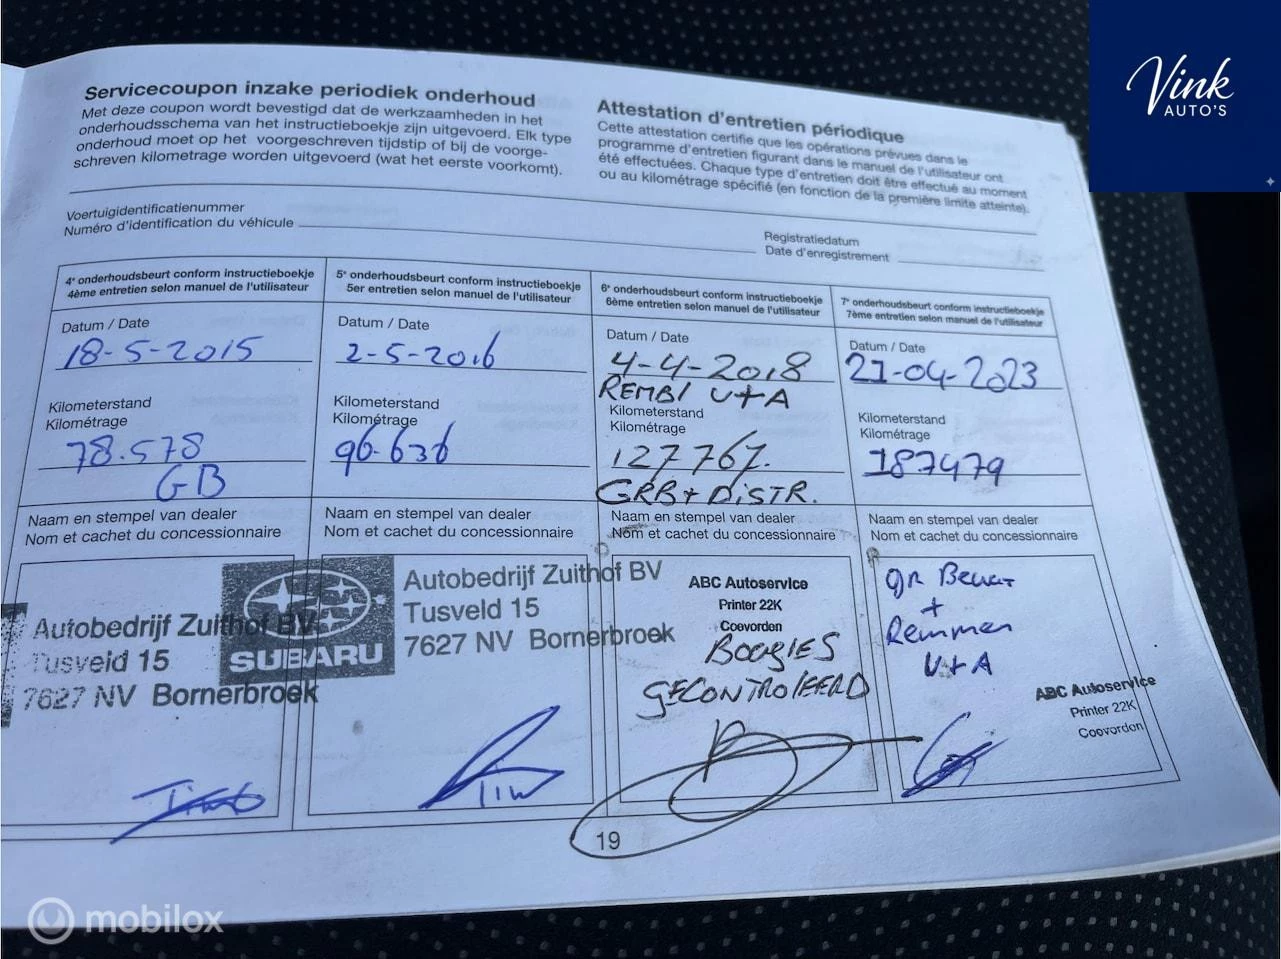 Vink
AUTO'S
Servicecoupon inzake periodiek onderhoud
Met deze coupon wordt bevestigd dat de werkzaamheden in het
onderhoudsschema van het instructieboekje zijn uitgevoerd. Elk type
onderhoud moet op het voorgeschreven tijdstip of bij de voorge-
schreven kilometrage worden uitgevoerd (wat het eerste voorkomt).
Attestation d'entretien périodique
Cette attestation certifie que les opérations prévues dans le
programme d'entretien figurant dans le manuel de l'utilisateur ont
été effectuées. Chaque type d'entretien doit être effectué au moment
ou au kilométrage spécifié (en fonction de la première limite atteinte).
Voertuigidentificatienummer
Numéro d'identification du véhicule
Registratiedatum
Date d'enregistrement
4e onderhoudsbeurt conform instructieboekje
4ème entretien selon manuel de l'utilisateur
Datum / Date
18-5-2015
Kilometerstand
Kilométrage
78.578
GB
Naam en stempel van dealer
Nom et cachet du concessionnaire
Autobedrijf Zuithof BV
Tusveld 15
7627 NV Bornerbroek
5e onderhoudsbeurt conform instructieboekje
5er entretien selon manuel de l'utilisateur
Datum / Date
2-5-2016
Kilometerstand
Kilométrage
96.636
Naam en stempel van dealer
Nom et cachet du concessionnaire
SUBARU
Autobedrijf Zuithof BV
Tusveld 15
7627 NV Bornerbroek
Tim
6e onderhoudsbeurt conform instructieboekje
6ème entretien selon manuel de l'utilisateur
Datum / Date
4-4-2018
REMBL V+A
Kilometerstand
Kilométrage
127767.
GRB+DISTR.
Naam en stempel van dealer
Nom et cachet du concessionnaire
ABC Autoservice
Printer 22K
Coevorden
BOUGIES
GECONTROLEERD
7e onderhoudsbeurt conform instructieboekje
7ème entretien selon manuel de l'utilisateur
Datum / Date
21-04-2023
Kilometerstand
Kilométrage
187479
Naam en stempel van dealer
Nom et cachet du concessionnaire
gr Beurt
+
Remmen
V+A
ABC Autoservice
Printer 22K
Coevorden
19
mobilox